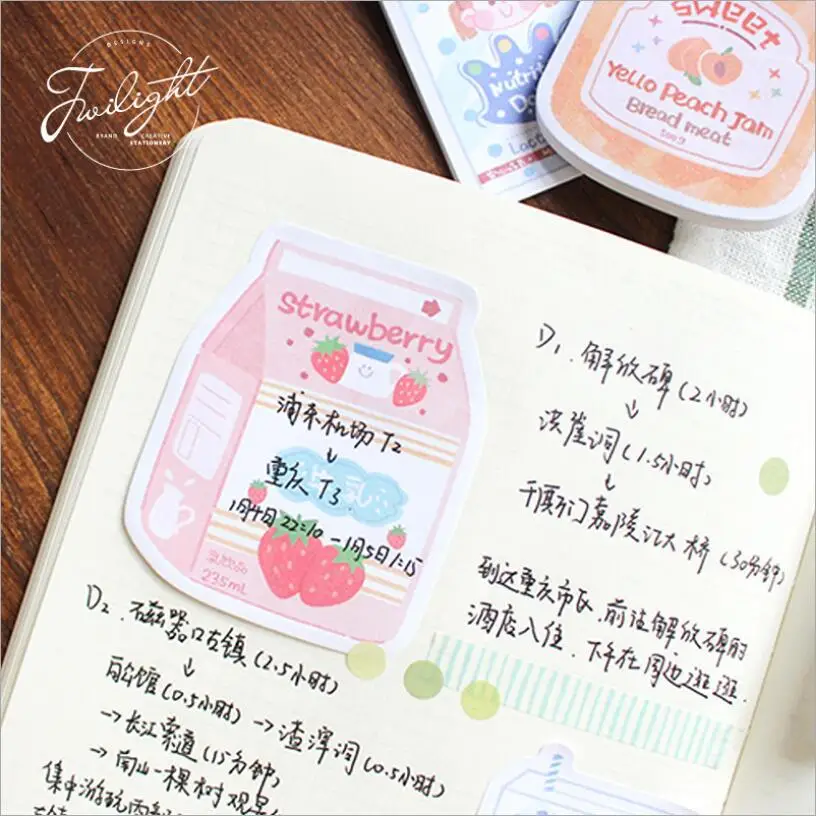 DESIGNS
Twilight
BRAND CREATIVE
STATIONERY
Sweet
Yello Peach Jam
Bread meat
500g
Strawberry
浦东机场 T2
↓
重庆 T3
1月4日 22:10 - 1月5日 1:15
乳饮品
235mL
D1. 解放碑 (2小时)
↓
洪崖洞 (1.5小时)
↓
千厮门嘉陵江大桥 (30分钟)
到达重庆市区,前往解放碑的
酒店入住.下午在周边逛逛.
D2. 磁器口古镇 (2.5小时)
↓
白公馆 (0.5小时) → 渣滓洞 (0.5小时)
→ 长江索道 (15分钟)
→ 南山一棵树观景
集中游玩